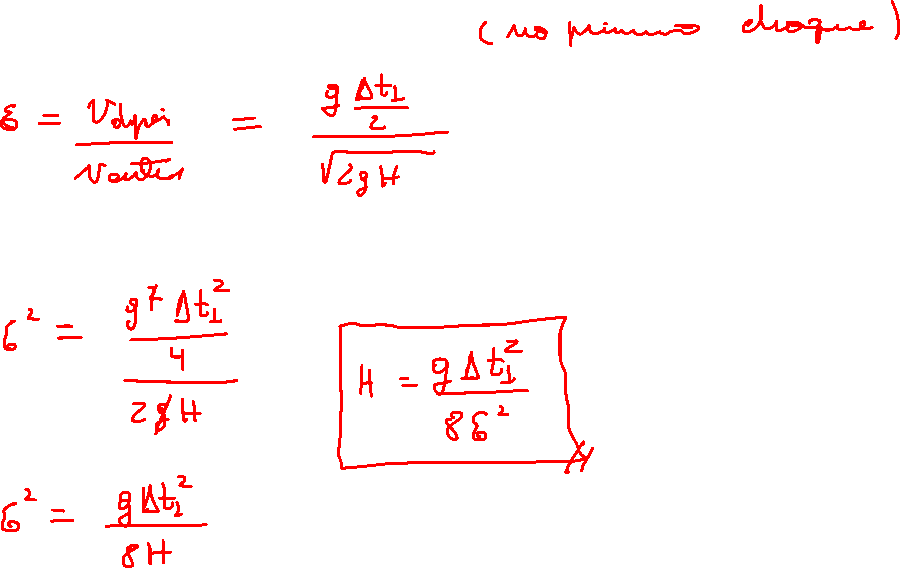 (no primeiro choque)
ε = Vdepois / Vantes = (g Δt1/2) / √2gH
ε² = (g² Δt1² / 4) / 2gH
H = g Δt1² / 8ε²
ε² = g Δt1² / 8H